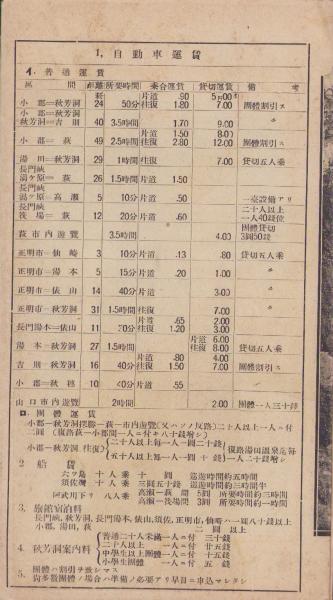 1, 自動車運賃
イ. 普通運賃
區間 距離 所要時間 乗合運賃 貸切運賃 備考
小郡=秋芳洞 24 50分 片道 .90 往復 1.80 5.00 7.00 團體割引ス
小郡=秋芳洞
秋芳洞=吉則 40 3.5時間 1.70 9.00 〃
小郡=萩 49 2.5時間 片道 1.50 往復 2.80 8.00 12.00 團體割引ス
湯田=秋芳洞 29 1時間 往復 7.00 貸切五人乗
長門峡
湯ヶ原=萩 26 1.5時間 片道 1.50
長門峡
湯ヶ原=高瀬 5 10分 片道 .50 一臺設備アリ
長門峡
後場=萩 12 20分 片道 .60 二十人以上 一人40錢位
萩市内遊覧 3.5時間 4.00 團體貸切 3圓50錢
正明市=仙崎 3 10分 片道 .13 .80 貸切五人乗
正明市=湯本 5 15分 片道 .20 1.00 〃
正明市=俵山 14 40分 片道 3.00 〃
正明市=秋芳洞 31 1.5時間 往復 7.00 〃
長門湯本=俵山 11 30分 片道 .65 往復 1.20 2.00 3.00 〃
湯本=秋芳洞 27 1.5時間 片道 6.00 往復 8.00 貸切五人乗
吉則=秋芳洞 16 40分 片道 .80 往復 1.50 4.00 7.00 團體割引ス
小郡=秋穂 10 40分 片道 .55
山口市内遊覧 2時間 2.00 團體一人三十錢
ロ. 團體運賃
小郡─秋芳洞探勝─萩─市内遊覧(又ハソノ反路)二十人以上一人ニ付
二圓 (復路萩─小郡間一人ニ付キ八十錢増シ)
小郡─秋芳洞(往復) 二十人以上毎一人一圓二十錢 復路湯田温泉廻毎
五十人以上毎一人一圓十錢 一人二十錢増シ
2 船賃
六ツ島 十人乗 十圓 巡遊時間約五時間
須佐灣 十人乗 三圓五十錢 巡遊時間約三時間半
阿武川下リ 八人乗 高瀬─萩間 5圓 所要時間約三時間
高瀬─後場間 3圓 所要時間約二時間
3. 旅館宿泊料
長門峡, 秋芳洞, 長門湯本, 俵山, 須佐, 正明市, 仙崎 一圓八十錢以上
小郡, 湯田, 萩 二圓以上
4. 秋芳洞案内料
普通二十人未滿 一人ニ付 三十錢
二十人以上 一人ニ付 廿五錢
中學生以上團體 一人ニ付 十五錢
小學生團體 一人ニ付 五錢
5. 團體ハ割引ヲ致シマス
尚多數團體ノ場合ハ準備ノ必要アリ早目ニ申込マレタシ